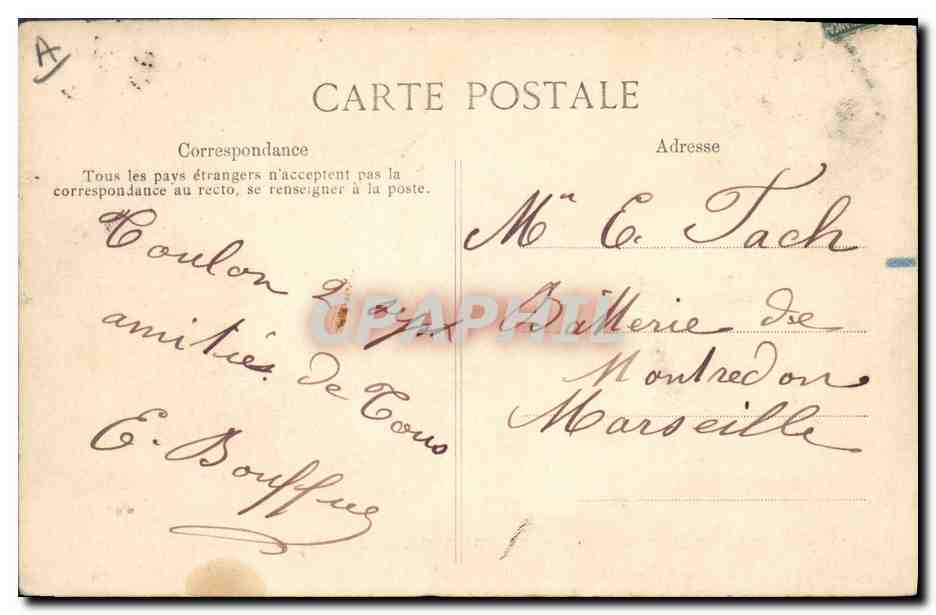 A
CARTE POSTALE
Correspondance
Tous les pays étrangers n'acceptent pas la
correspondance au recto, se renseigner à la poste.
Toulon 2
amitiés de Tous
E. Bouffue
Adresse
Mr E. Tach
Batterie de
Montredon
Marseille
CPAPHIL